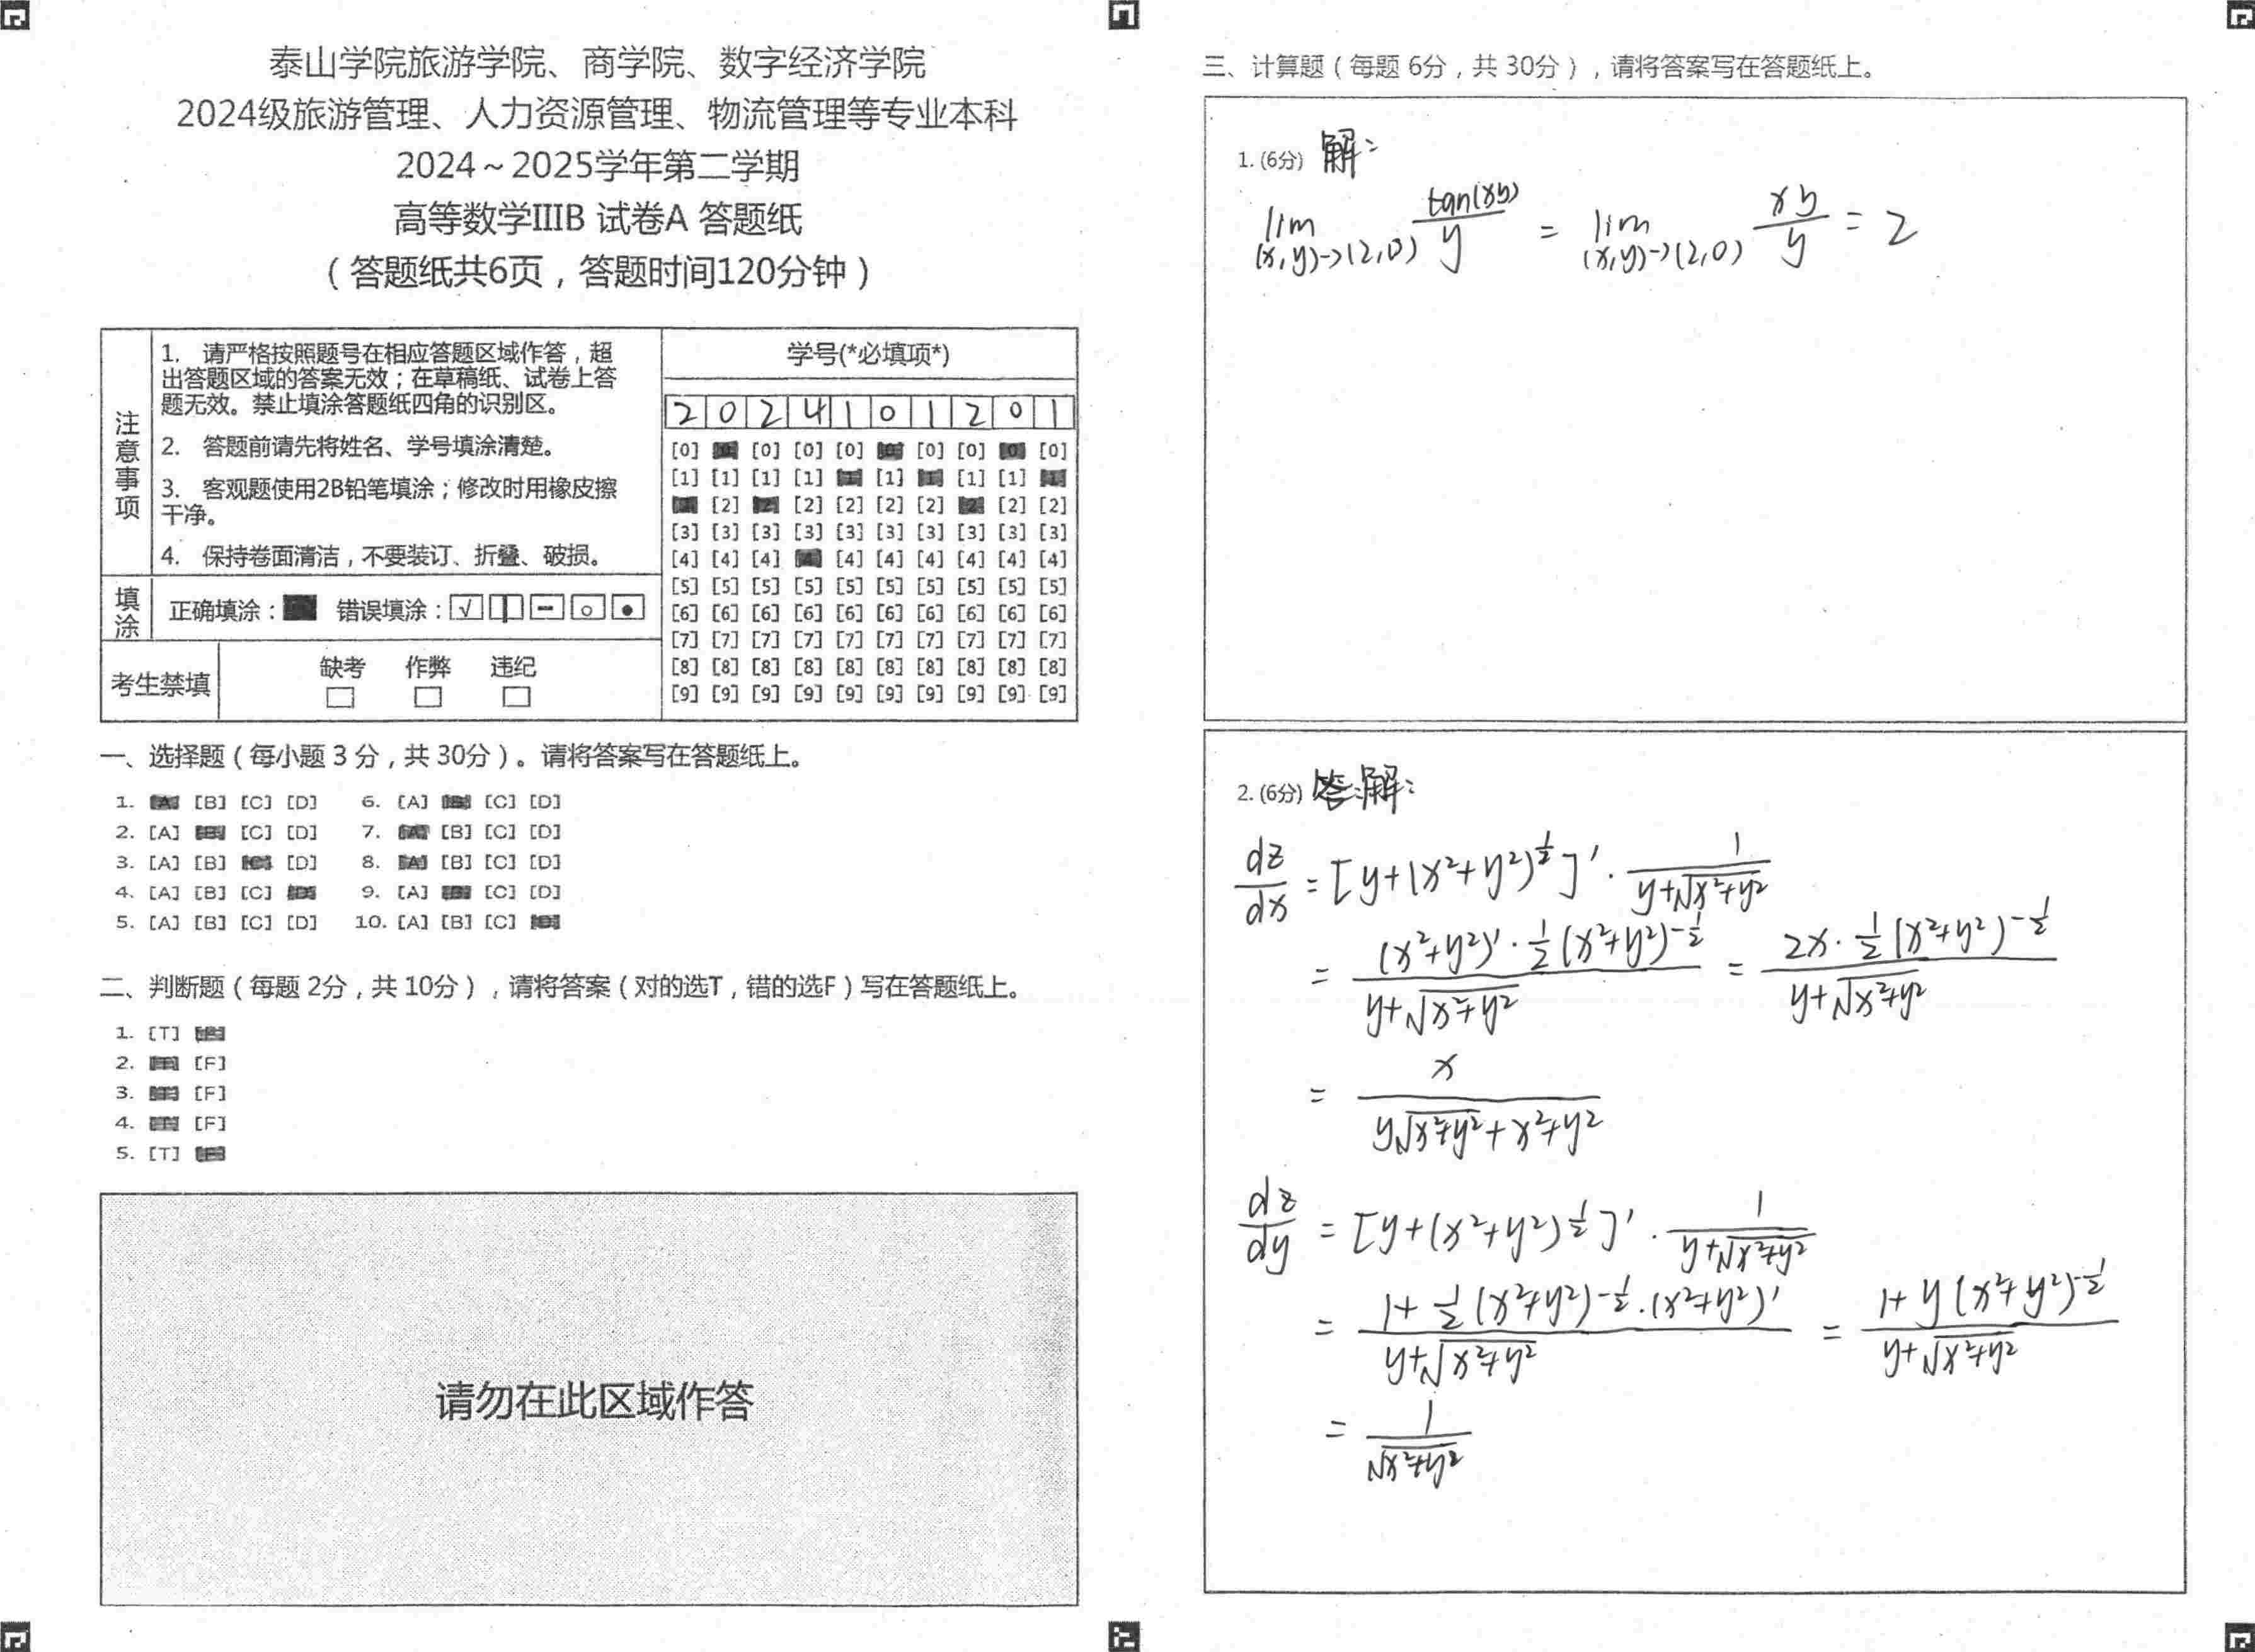 泰山学院旅游学院、商学院、数字经济学院
2024级旅游管理、人力资源管理、物流管理等专业本科
2024～2025学年第二学期
高等数学IIIB 试卷A 答题纸
（答题纸共6页，答题时间120分钟）
注意事项
1. 请严格按照题号在相应答题区域作答，超
出答题区域的答案无效；在草稿纸、试卷上答
题无效。禁止填涂答题纸四角的识别区。
2. 答题前请先将姓名、学号填涂清楚。
3. 客观题使用2B铅笔填涂；修改时用橡皮擦
干净。
4. 保持卷面清洁，不要装订、折叠、破损。
填涂 正确填涂：■ 错误填涂：[√] [|] [-] [○] [●]
考生禁填 缺考 □ 作弊 □ 违纪 □
学号(*必填项*)
2 0 2 4 1 0 1 2 0 1
[0] ■ [0] [0] [0] ■ [0] [0] ■ [0]
[1] [1] [1] [1] ■ [1] ■ [1] [1] ■
■ [2] ■ [2] [2] [2] [2] ■ [2] [2]
[3] [3] [3] [3] [3] [3] [3] [3] [3] [3]
[4] [4] [4] ■ [4] [4] [4] [4] [4] [4]
[5] [5] [5] [5] [5] [5] [5] [5] [5] [5]
[6] [6] [6] [6] [6] [6] [6] [6] [6] [6]
[7] [7] [7] [7] [7] [7] [7] [7] [7] [7]
[8] [8] [8] [8] [8] [8] [8] [8] [8] [8]
[9] [9] [9] [9] [9] [9] [9] [9] [9] [9]
一、选择题（每小题 3 分，共 30分）。请将答案写在答题纸上。
1. ■ [B] [C] [D] 6. [A] ■ [C] [D]
2. [A] ■ [C] [D] 7. ■ [B] [C] [D]
3. [A] [B] ■ [D] 8. ■ [B] [C] [D]
4. [A] [B] [C] ■ 9. [A] ■ [C] [D]
5. [A] [B] [C] [D] 10. [A] [B] [C] ■
二、判断题（每题 2分，共 10分），请将答案（对的选T，错的选F）写在答题纸上。
1. [T] ■
2. ■ [F]
3. ■ [F]
4. ■ [F]
5. [T] ■
请勿在此区域作答
三、计算题（每题 6分，共 30分），请将答案写在答题纸上。
1. (6分) 解：
lim (x,y)->(2,0) tan(xy)/y = lim (x,y)->(2,0) xy/y = 2
2. (6分) 解：
dz/dx = [y+(x²+y²)^½]′ · 1/(y+√(x²+y²))
= ((x²+y²)′ · ½(x²+y²)^-½)/(y+√(x²+y²)) = (2x · ½(x²+y²)^-½)/(y+√(x²+y²))
= x/(y√(x²+y²)+x²+y²)
dz/dy = [y+(x²+y²)^½]′ · 1/(y+√(x²+y²))
= (1+½(x²+y²)^-½ · (x²+y²)′)/(y+√(x²+y²)) = (1+y(x²+y²)^-½)/(y+√(x²+y²))
= 1/√(x²+y²)